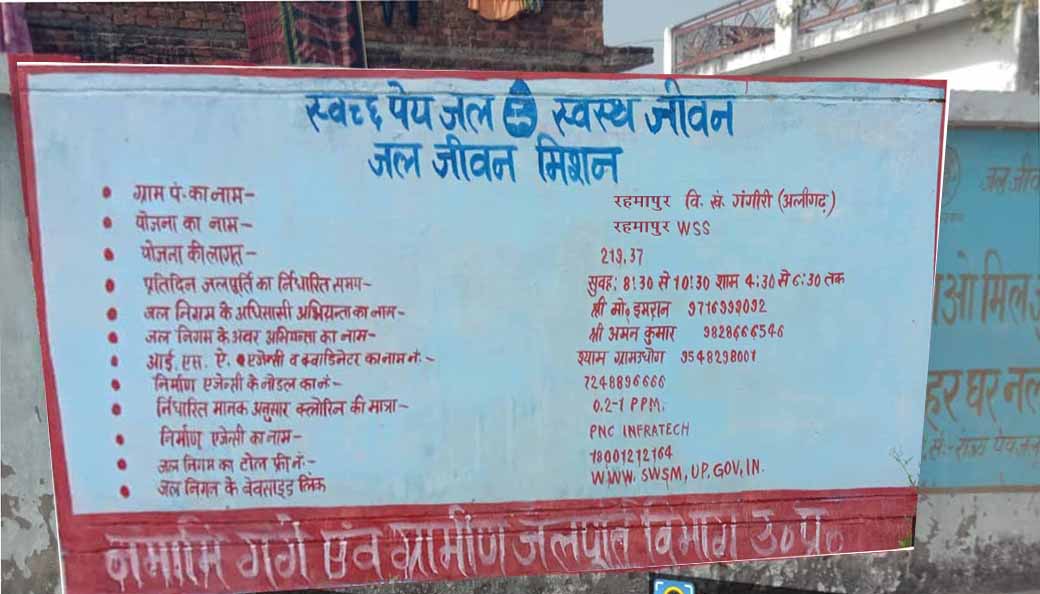 स्वच्छ पेय जल स्वस्थ जीवन
जल जीवन मिशन
ग्राम पं. का नाम- रहमापुर वि. खं. गंगीरी (अलीगढ़)
योजना का नाम- रहमापुर WSS
योजना की लागत- 219.37
प्रतिदिन जलपूर्ति का निर्धारित समय- सुवह: 8:30 से 10:30 शाम 4:30 से 6:30 तक
जल निगम के अधिसासी अभियन्ता का नाम- श्री मो0 इमरान 9716999092
जल निगम के अवर अभियन्ता का नाम- श्री अमन कुमार 9828666546
आई. एस. ए. एजेन्सी व क्वाडिनेटर का नाम नं:- श्याम ग्रामउधोग 9548298001
निर्माण एजेन्सी के नोडल का नं- 7248896666
निर्धारित मानक अनुसार क्लोरिन की मात्रा- 0.2-1 PPM.
निर्माण एजेन्सी का नाम- PNC INFRATECH
जल निगम का टोल फ्री नं:- 18001212164
जल निगम के बेवसाइड लिंक WWW. SWSM, UP. GOV, IN.
नमामि गंगे एवं ग्रामीण जलपूर्ति विभाग उ० प्र०
जल जीव
ओ मिल
हर घर नल